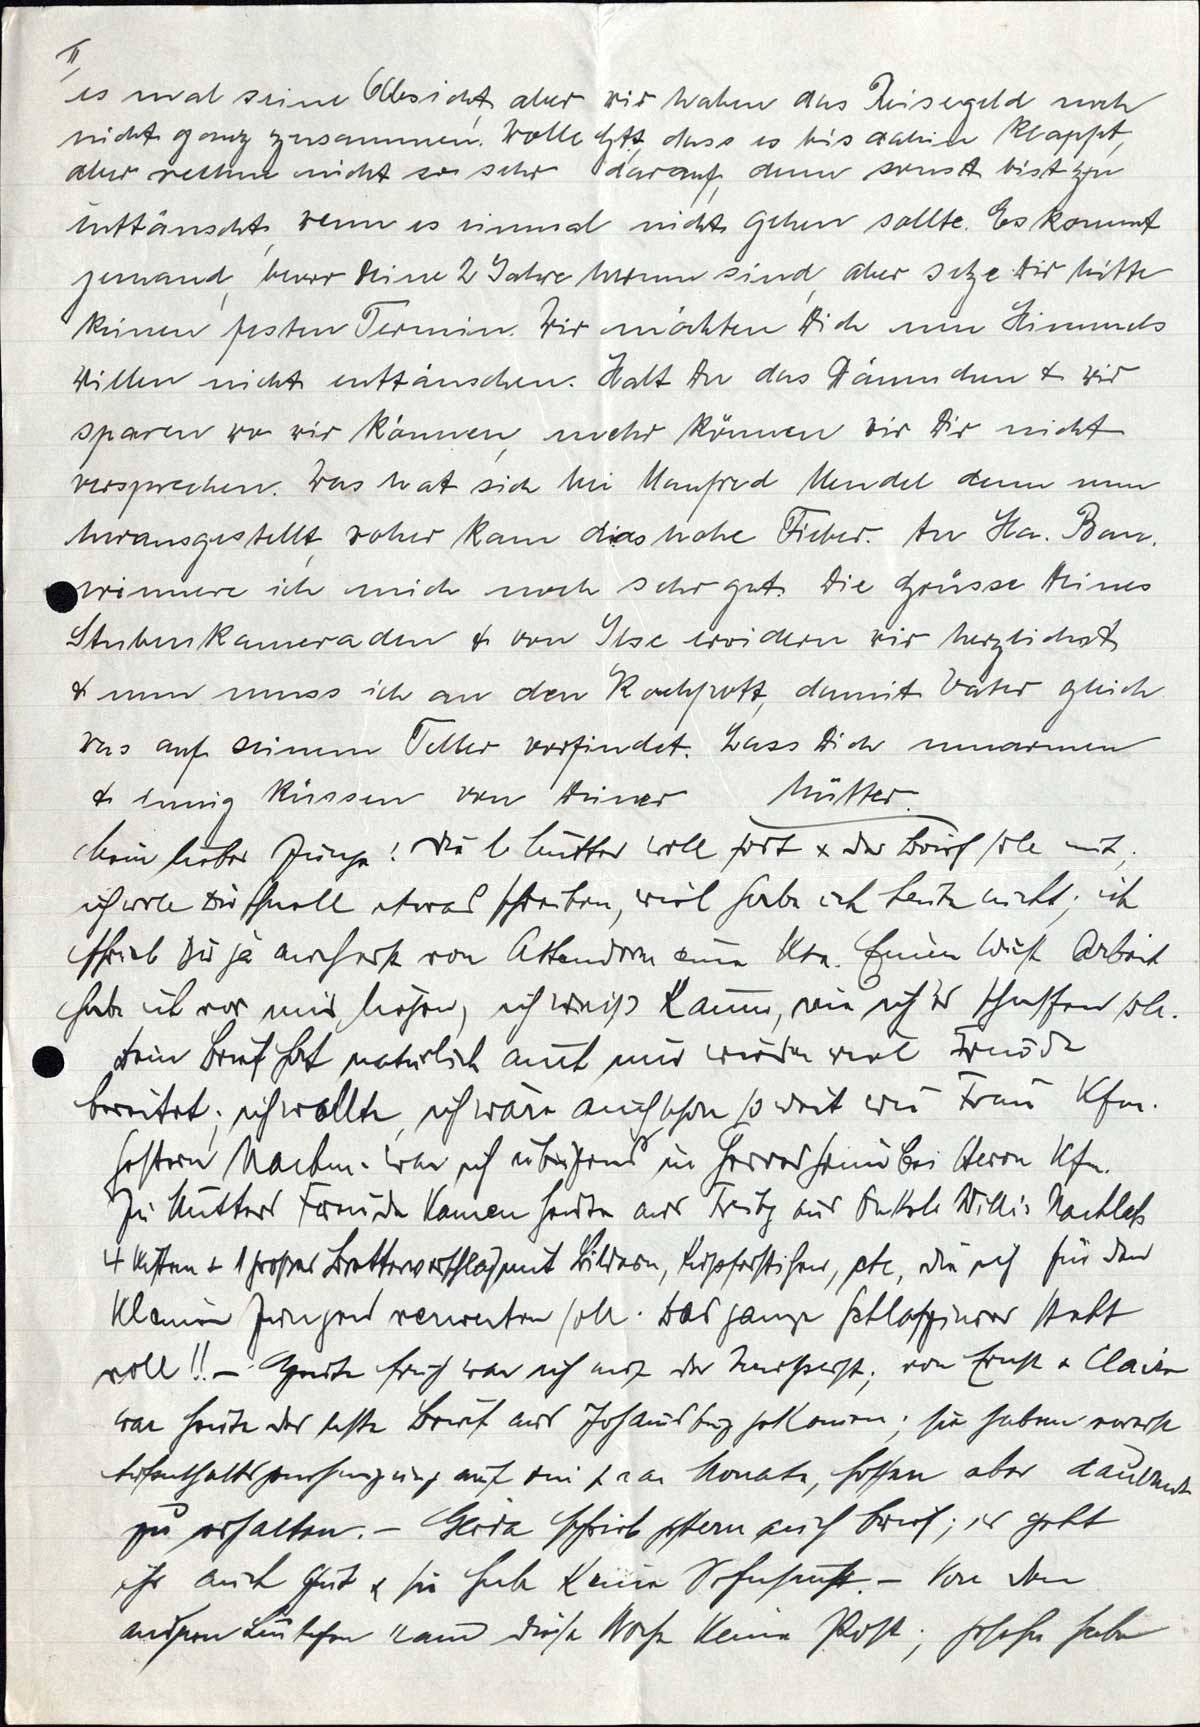 II,
es mal seine Absicht, aber wir haben das Reisegeld noch
nicht ganz zusammen. Wolle Gtt, dass es bis dahin klappt,
aber rechne nicht so sehr darauf, denn sonst bist zu
enttäuscht, wenn es einmal nicht gehen sollte. Es kommt
jemand, bevor Deine 2 Jahre herum sind, aber setze Dir bitte
keinen festen Termin. Wir möchten Dich um Himmels
Willen nicht enttäuschen. Halt Du das Däumchen & wir
sparen wo wir können, mehr können wir Dir nicht
versprechen. Was hat sich bei Manfred Mendel denn nun
herausgestellt, woher kam das hohe Fieber. An Ha. Bam.
erinnere ich mich noch sehr gut. Die Grüsse Deines
Stubenkameraden & von Ilse erwidern wir herzlichst
& nun muss ich an den Kochpott, damit Vater gleich
was auf seinem Teller vorfindet. Lass Dich umarmen
& innig küssen von Deiner Mutter.
Mein lieber Junge! Die l. Mutter will fort & der Brief soll mit,
ich will Dir schnell etwas schreiben, viel habe ich heute nicht; ich
schrieb Dir ja auch erst von Attendorn eine Kte. Einen Wust Arbeit
habe ich vor mir liegen, ich weiß kaum, wie ich es schaffen soll.
Dein Brief hat natürlich auch mir wieder viel Freude
bereitet; ich wollte, ich wäre auch schon so weit wie Frau Kfm.
Gestern Nachm. war ich übrigens in bei Herrn Kfm.
Zu Mutters Freude kamen heute aus aus Onkel Willis Nachlaß
4 Kisten & 1 großer Bretterverschlag mit Bildern, Kupferstichen, etc, die ich für den
kleinen Jungens verwerten soll. Das ganze Schlafzimmer steht
voll!! – Heute früh war ich auf der; von Ernst & Claire
war heute der erste Brief aus Johannesburg gekommen; sie haben vorerst
Aufenthaltsgenehmigung auf Monate, hoffen aber dauernde
zu erhalten. – Gerda schrieb gestern auch Brief; es geht
ihr auch gut & sie habe keine Sehnsucht. – Von den
anderen kam diese Woche keine Post; habe